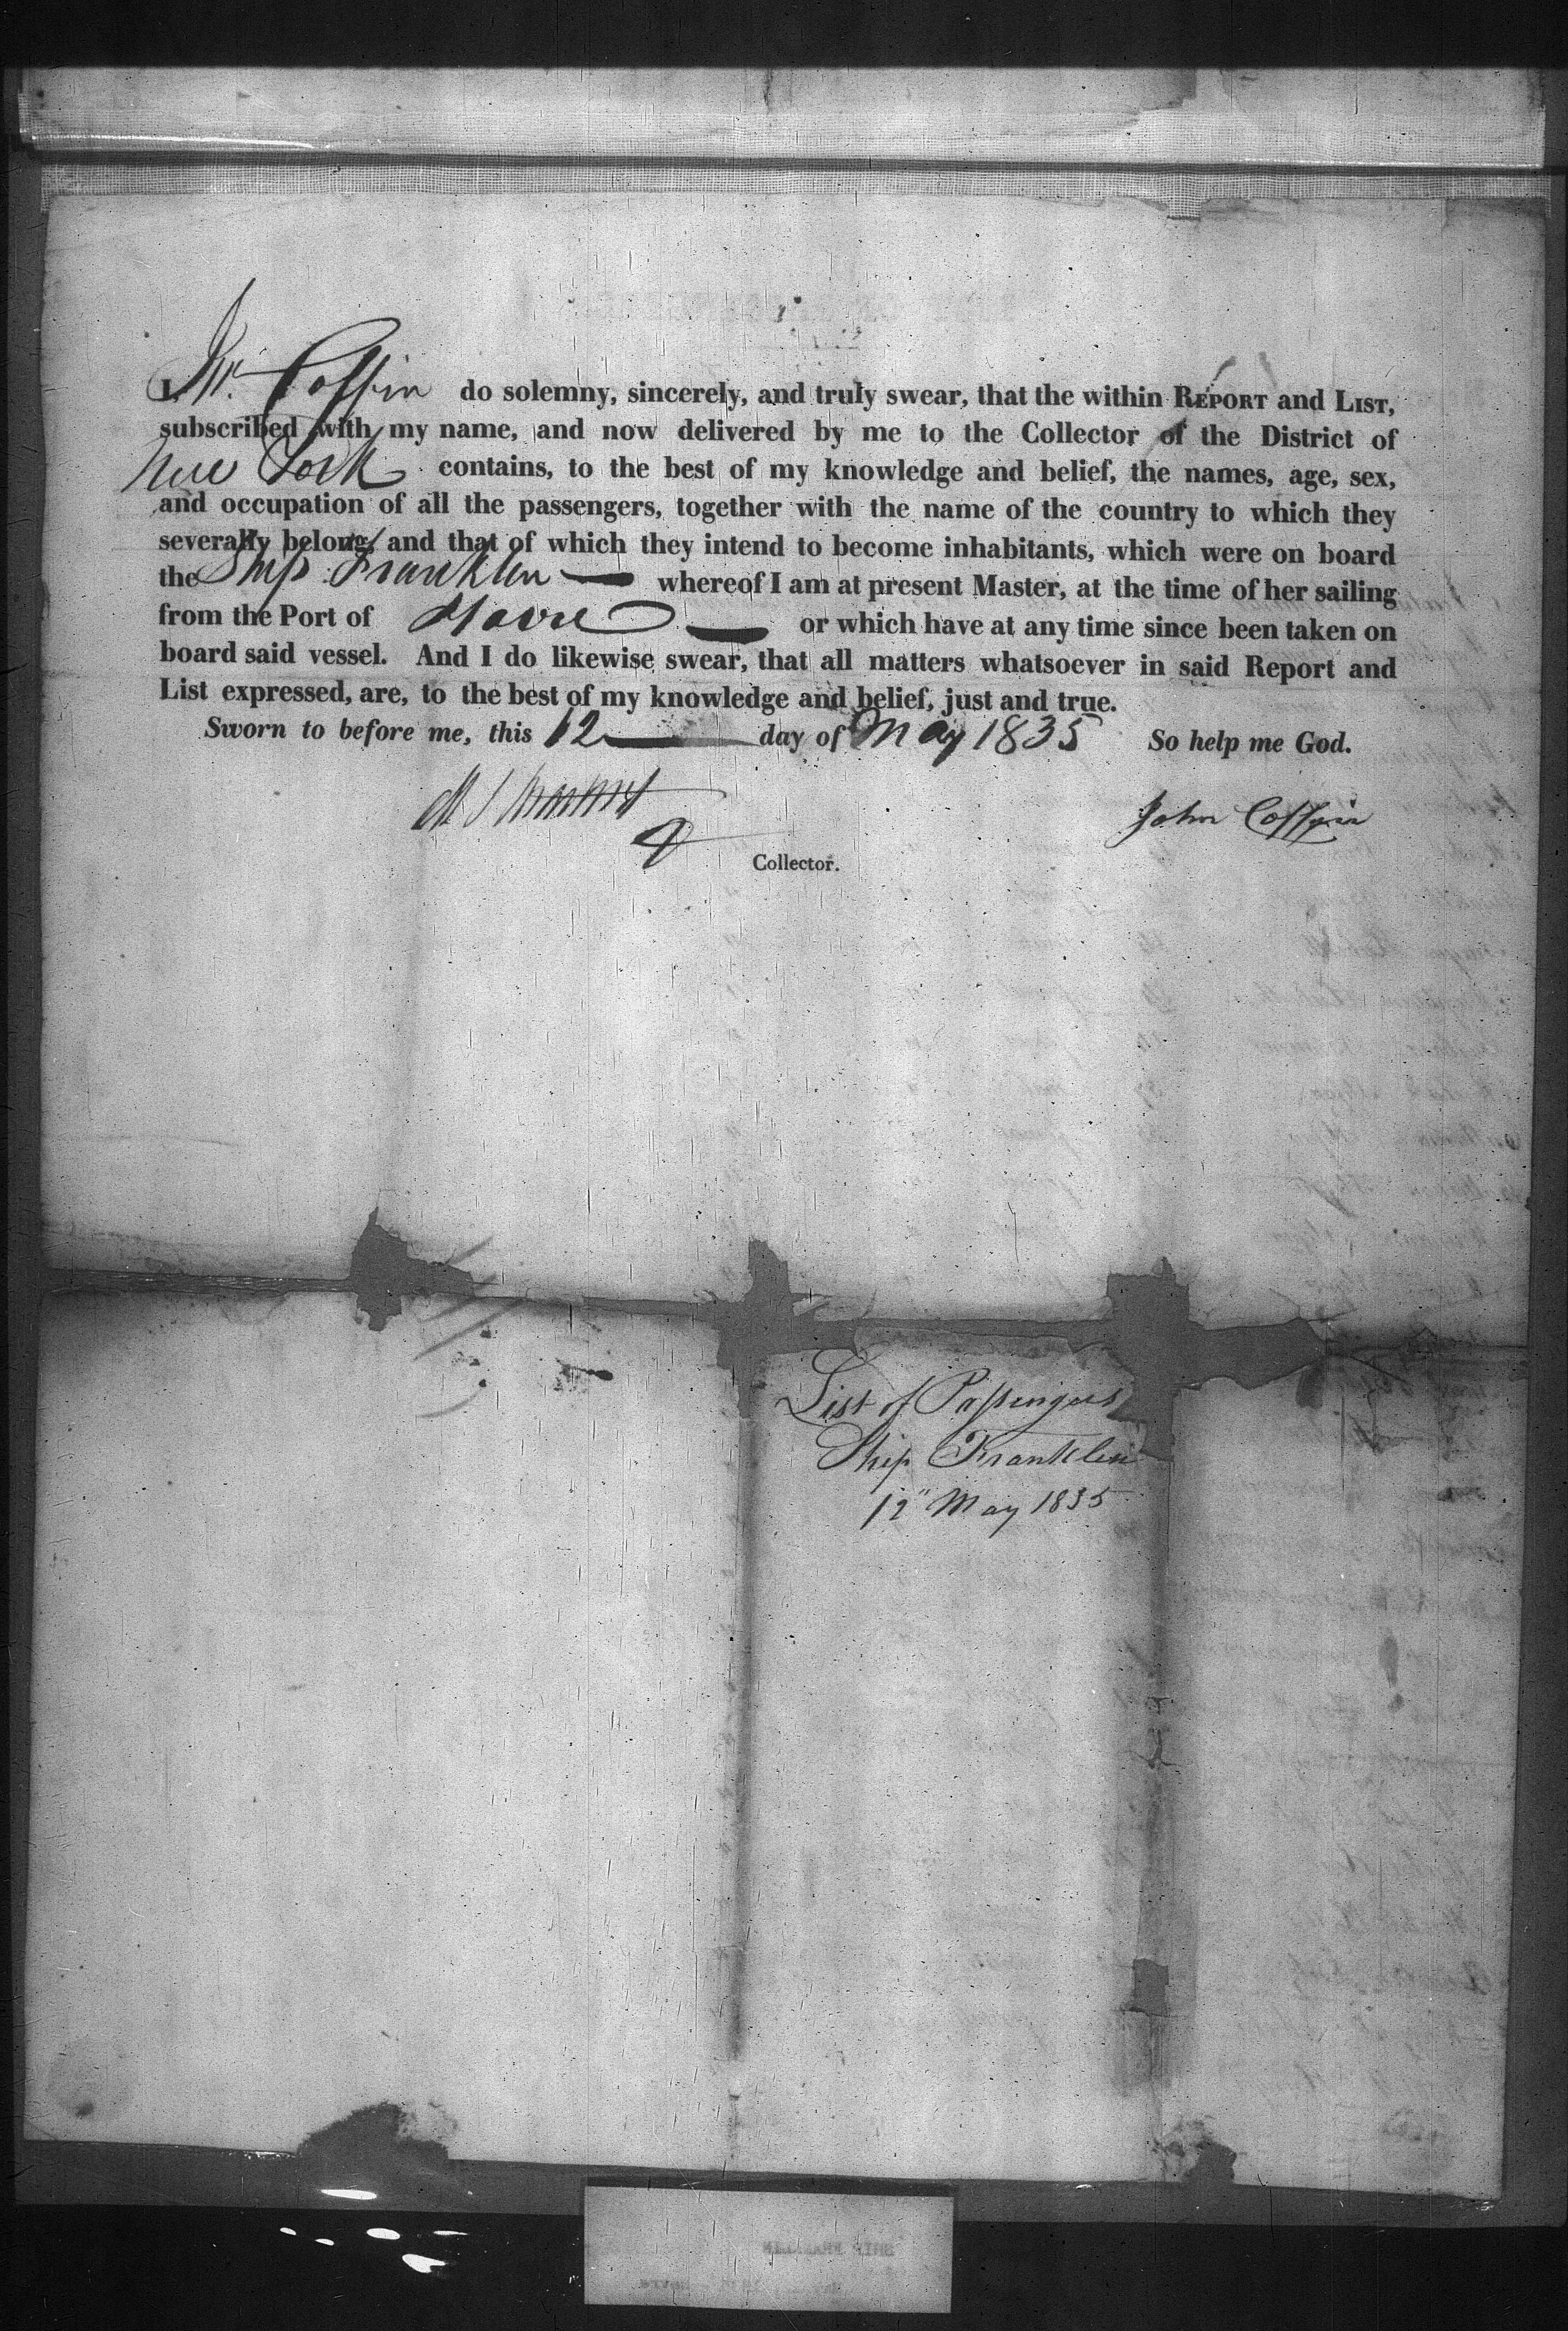 I, Jno. Coffin do solemny, sincerely, and truly swear, that the within REPORT and LIST,
subscribed with my name, and now delivered by me to the Collector of the District of
New York contains, to the best of my knowledge and belief, the names, age, sex,
and occupation of all the passengers, together with the name of the country to which they
severally belong, and that of which they intend to become inhabitants, which were on board
the Ship Franklin whereof I am at present Master, at the time of her sailing
from the Port of Havre or which have at any time since been taken on
board said vessel. And I do likewise swear, that all matters whatsoever in said Report and
List expressed, are, to the best of my knowledge and belief, just and true.
Sworn to before me, this 12 day of May 1835 So help me God.
John Coffin
Collector.
List of Passengers
Ship Franklin
12" May 1835